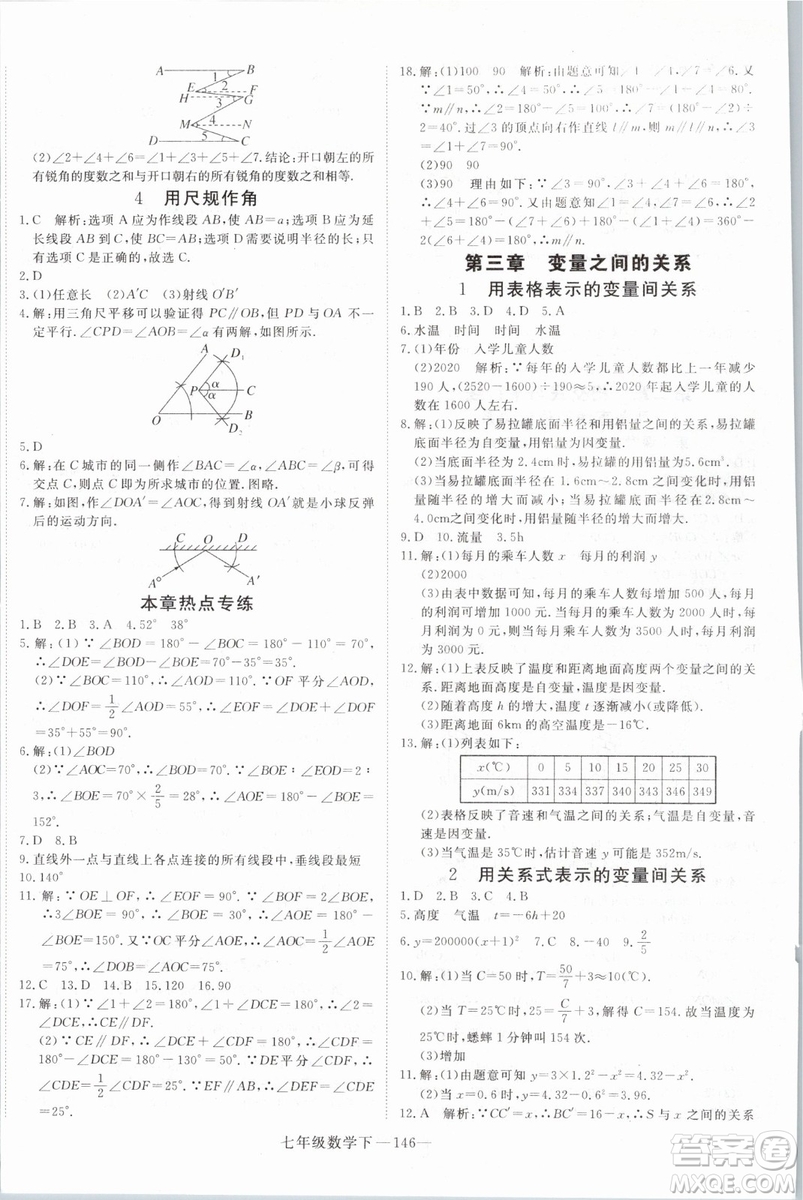 A B
1
2
E F
H G
3
M 4 N
5
D C
(2)∠2+∠4+∠6=∠1+∠3+∠5+∠7.结论:开口朝左的所
有锐角的度数之和与开口朝右的所有锐角的度数之和相等.
4 用尺规作角
1.C 解析:选项A应为作线段AB,使AB=a;选项B应为延
长线段AB到C,使BC=AB;选项D需说明半径的长;只
有选项C是正确的.故选C.
2.D
3.(1)任意长 (2)A′C′ (3)射线O′B′
4.解:用三角尺平移可以验证得PC∥OB,PD与OA不一
定平行.∠CPD=∠AOB=∠α有两解,如图所示.
A D₁
P α C
α
O D₂ B
5.D
6.解:在C城市的同一侧作∠BAC=∠α,∠ABC=∠β,可得
交点C,则点C即为所求城市的位置.图略.
7.解:如图,作∠DOA′=∠AOC,得到射线OA′就是小球反弹
后的运动方向.
C O D
A A′
本章热点专练
1.B 2.B 3.A 4.52° 38°
5.解:(1)∵∠BOD=180°-∠BOC=180°-110°=70°,
∴∠DOE=∠BOD-∠BOE=70°-35°=35°.
(2)∵∠BOC=110°,∴∠AOD=110°.∵OF平分∠AOD,
∴∠DOF=1/2∠AOD=55°,∴∠EOF=∠DOE+∠DOF=
35°+55°=90°.
6.解:(1)∠BOD
(2)∵∠AOC=70°,∴∠BOD=70°.∵∠BOE∶∠DOE=2∶
3,∴∠BOE=70°×2/5=28°,∴∠AOE=180°-∠BOE=
152°.
7.D 8.B
9.直线外一点与直线上各点连接的所有线段中,垂线段最短
10.140°
11.解:∵OE⊥OF,∴∠EOF=90°.∵∠BOF=2∠BOE,
∴3∠BOE=90°,∴∠BOE=30°,∴∠AOE=180°-
∠BOE=150°.又∵OC平分∠AOE,∴∠AOC=1/2∠AOE=
75°,∴∠DOB=∠AOC=75°.
12.C 13.D 14.B 15.120 16.90
17.解:(1)∵∠1+∠2=180°,∠1+∠DCE=180°,∴∠2=
∠DCE,∴CE∥DF.
(2)∵CE∥DF,∠DCE=130°,∴∠CDF=180°-
∠DCE=180°-130°=50°.∵DE平分∠CDF,∴
∠CDE=1/2∠CDF=25°.∵EF∥AB,∴∠DEF=∠CDE=
25°.
18.解:(1)100 90 解析:由题意可知∠5=∠1,∠4=∠6.又
∵∠1=50°,∴∠5=∠1=50°,∠7=180°-∠5-∠1=
80°.∵m∥n,∴∠2=180°-∠7=100°,∴∠6=(180°-∠2)÷
2=40°.过∠3的顶点向右作直线l∥m,则l∥m∥n,可得
∠3=∠5+∠6=90°.
(2)90 90
(3)90 理由如下:∵∠3=90°,∴∠4+∠5=90°.又由题
意知∠1=∠5,∠4=∠6,∴∠2+∠7=180°-(∠5+
∠1)+180°-(∠4+∠6)=360°-2∠4-2∠5=360°-
2(∠4+∠5)=180°,∴m∥n.
第三章 变量之间的关系
1 用表格表示的变量间关系
1.B 2.B 3.D 4.D 5.A
6.水温 时间 时间 水温
7.(1)年份 入学儿童人数
(2)2020 解析:∵每年的入学儿童人数都比上一年减少
190人,(2520-1600)÷190≈5,∴2020年起入学儿童的人
数在1600人左右.
8.解:(1)反映了易拉罐底面半径和用铝量之间的关系,易拉罐
底面半径为自变量,用铝量为因变量.
(2)当底面半径为2.4cm时,易拉罐的用铝量为5.6cm³.
(3)易拉罐底面半径在1.6cm~2.8cm之间变化时,用铝
量随半径的增大而减小,易拉罐底面半径在2.8cm~
4.0cm之间变化时,用铝量随半径的增大而增大.
9.D 10.流量 3.5h
11.解:(1)每月的乘车人数x 每月的利润y
(2)2000
(3)由表中数据可知,每月的乘车人数每增加500人,每
月的利润可增加1000元,当每月的乘车人数为2000人时,
每月利润为0元,则当每月乘车人数为3500人时,每月利
润为3000元.
12.解:(1)上表反映了温度和距离地面高度两个变量之间的关
系.距离地面高度是自变量,温度是因变量.
(2)随着高度h的增大,温度t逐渐减小(或降低).
(3)距离地面6km的高空温度是-16℃.
13.解:(1)列表如下:
x(℃) 0 5 10 15 20 25 30
y(m/s) 331 334 337 340 343 346 349
(2)表格反映了音速和气温之间的关系;气温是自变量,音
速是因变量.
(3)当气温是35℃时,估计音速y可能是352m/s.
2 用关系式表示的变量间关系
1.D 2.B 3.C 4.B
5.高度 气温 t=-6h+20
6.y=200000(x+1)² 7.D 8.B 9.2/5
10.解:(1)当C=50时,T=50/7+3≈10(℃).
(2)当T=25℃时,25=C/7+3,解得C=154.故当温度为
25℃时,蟋蟀1分钟叫154次.
(3)增加
11.解:(1)由题意可知y=1.2²×3-x²=4.32-x².
(2)当x=0.6时,y=4.32-0.6²=3.96.
12.A 解析:∵BC=6,CC′=x,∴BC′=6-x,∴S与x之间的关系
七年级数学下—146—
答案圈
MXQE.COM